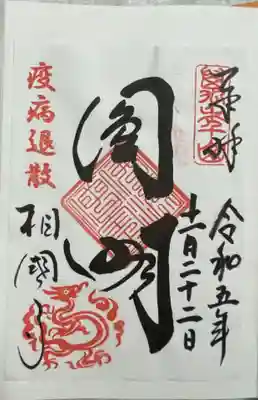 奉拝
萬年山
令和五年
十一月二十二日
圓明
疫病退散
相國寺